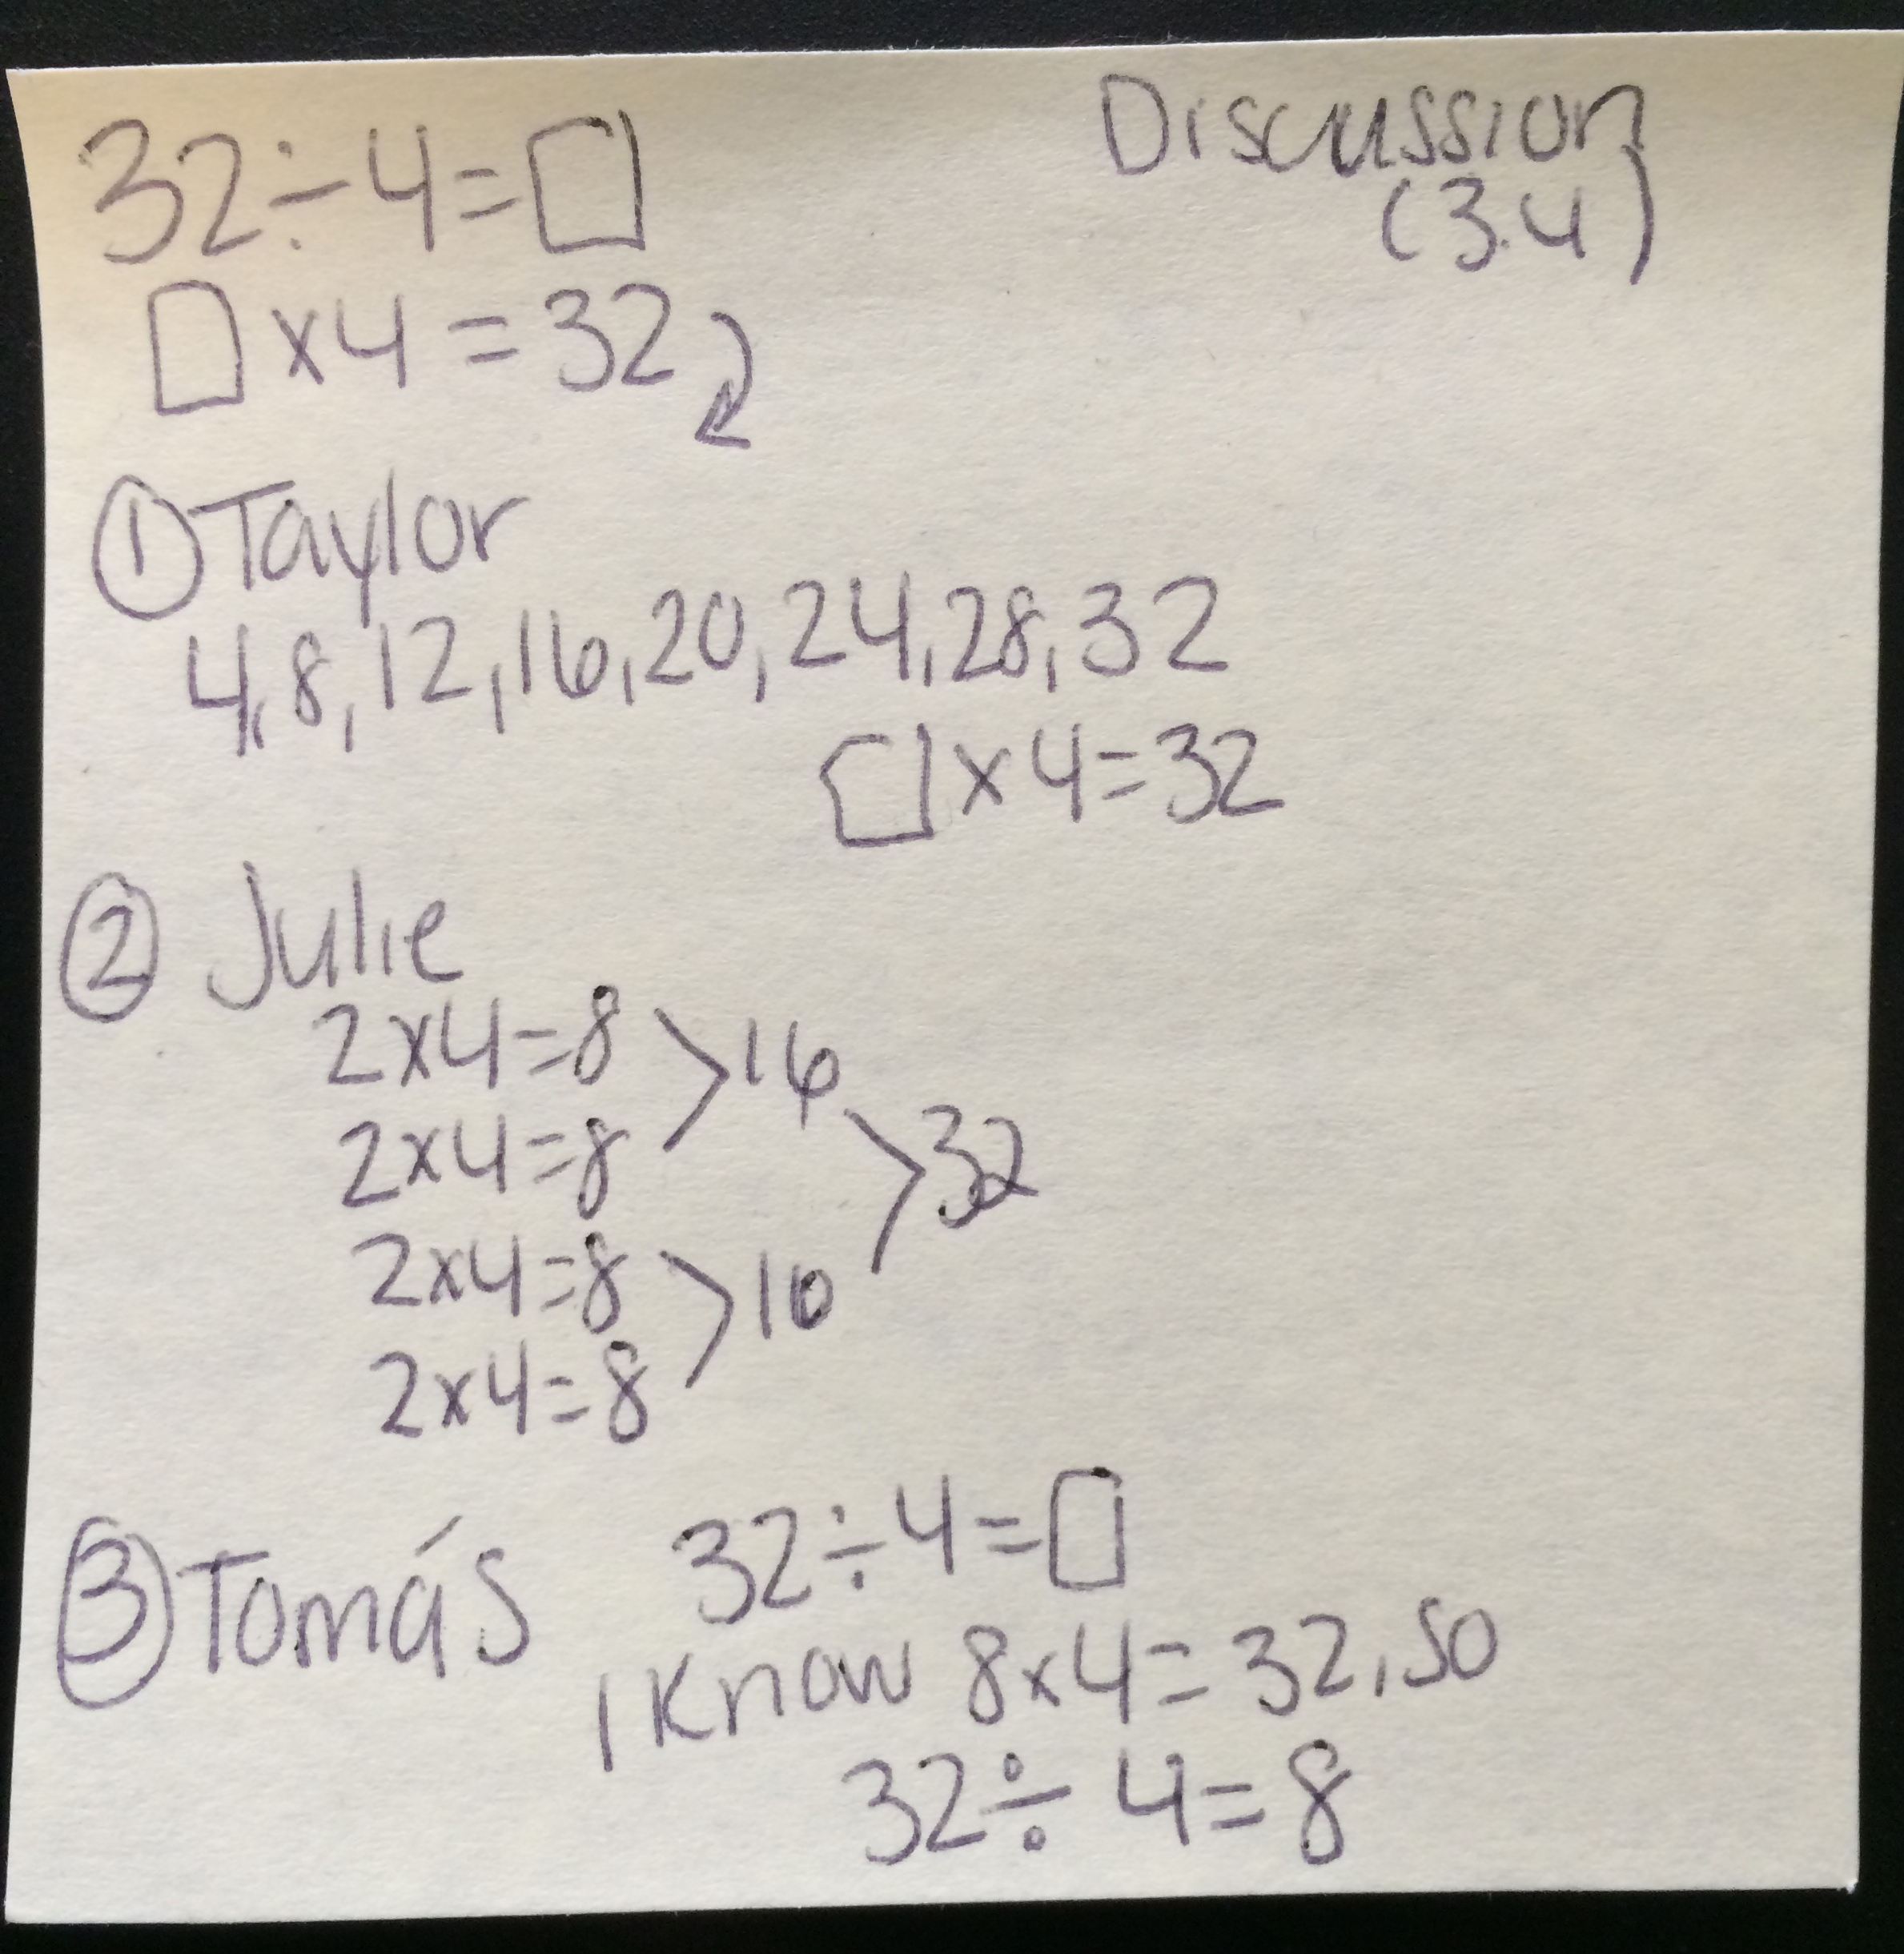 32÷4=□
Discussion
(3.4)
□×4=32
① Taylor
4,8,12,16,20,24,28,32
□×4=32
② Julie
2×4=8 >16
2×4=8
>32
2×4=8 >16
2×4=8
③ Tomás 32÷4=□
I know 8×4=32, so
32÷4=8